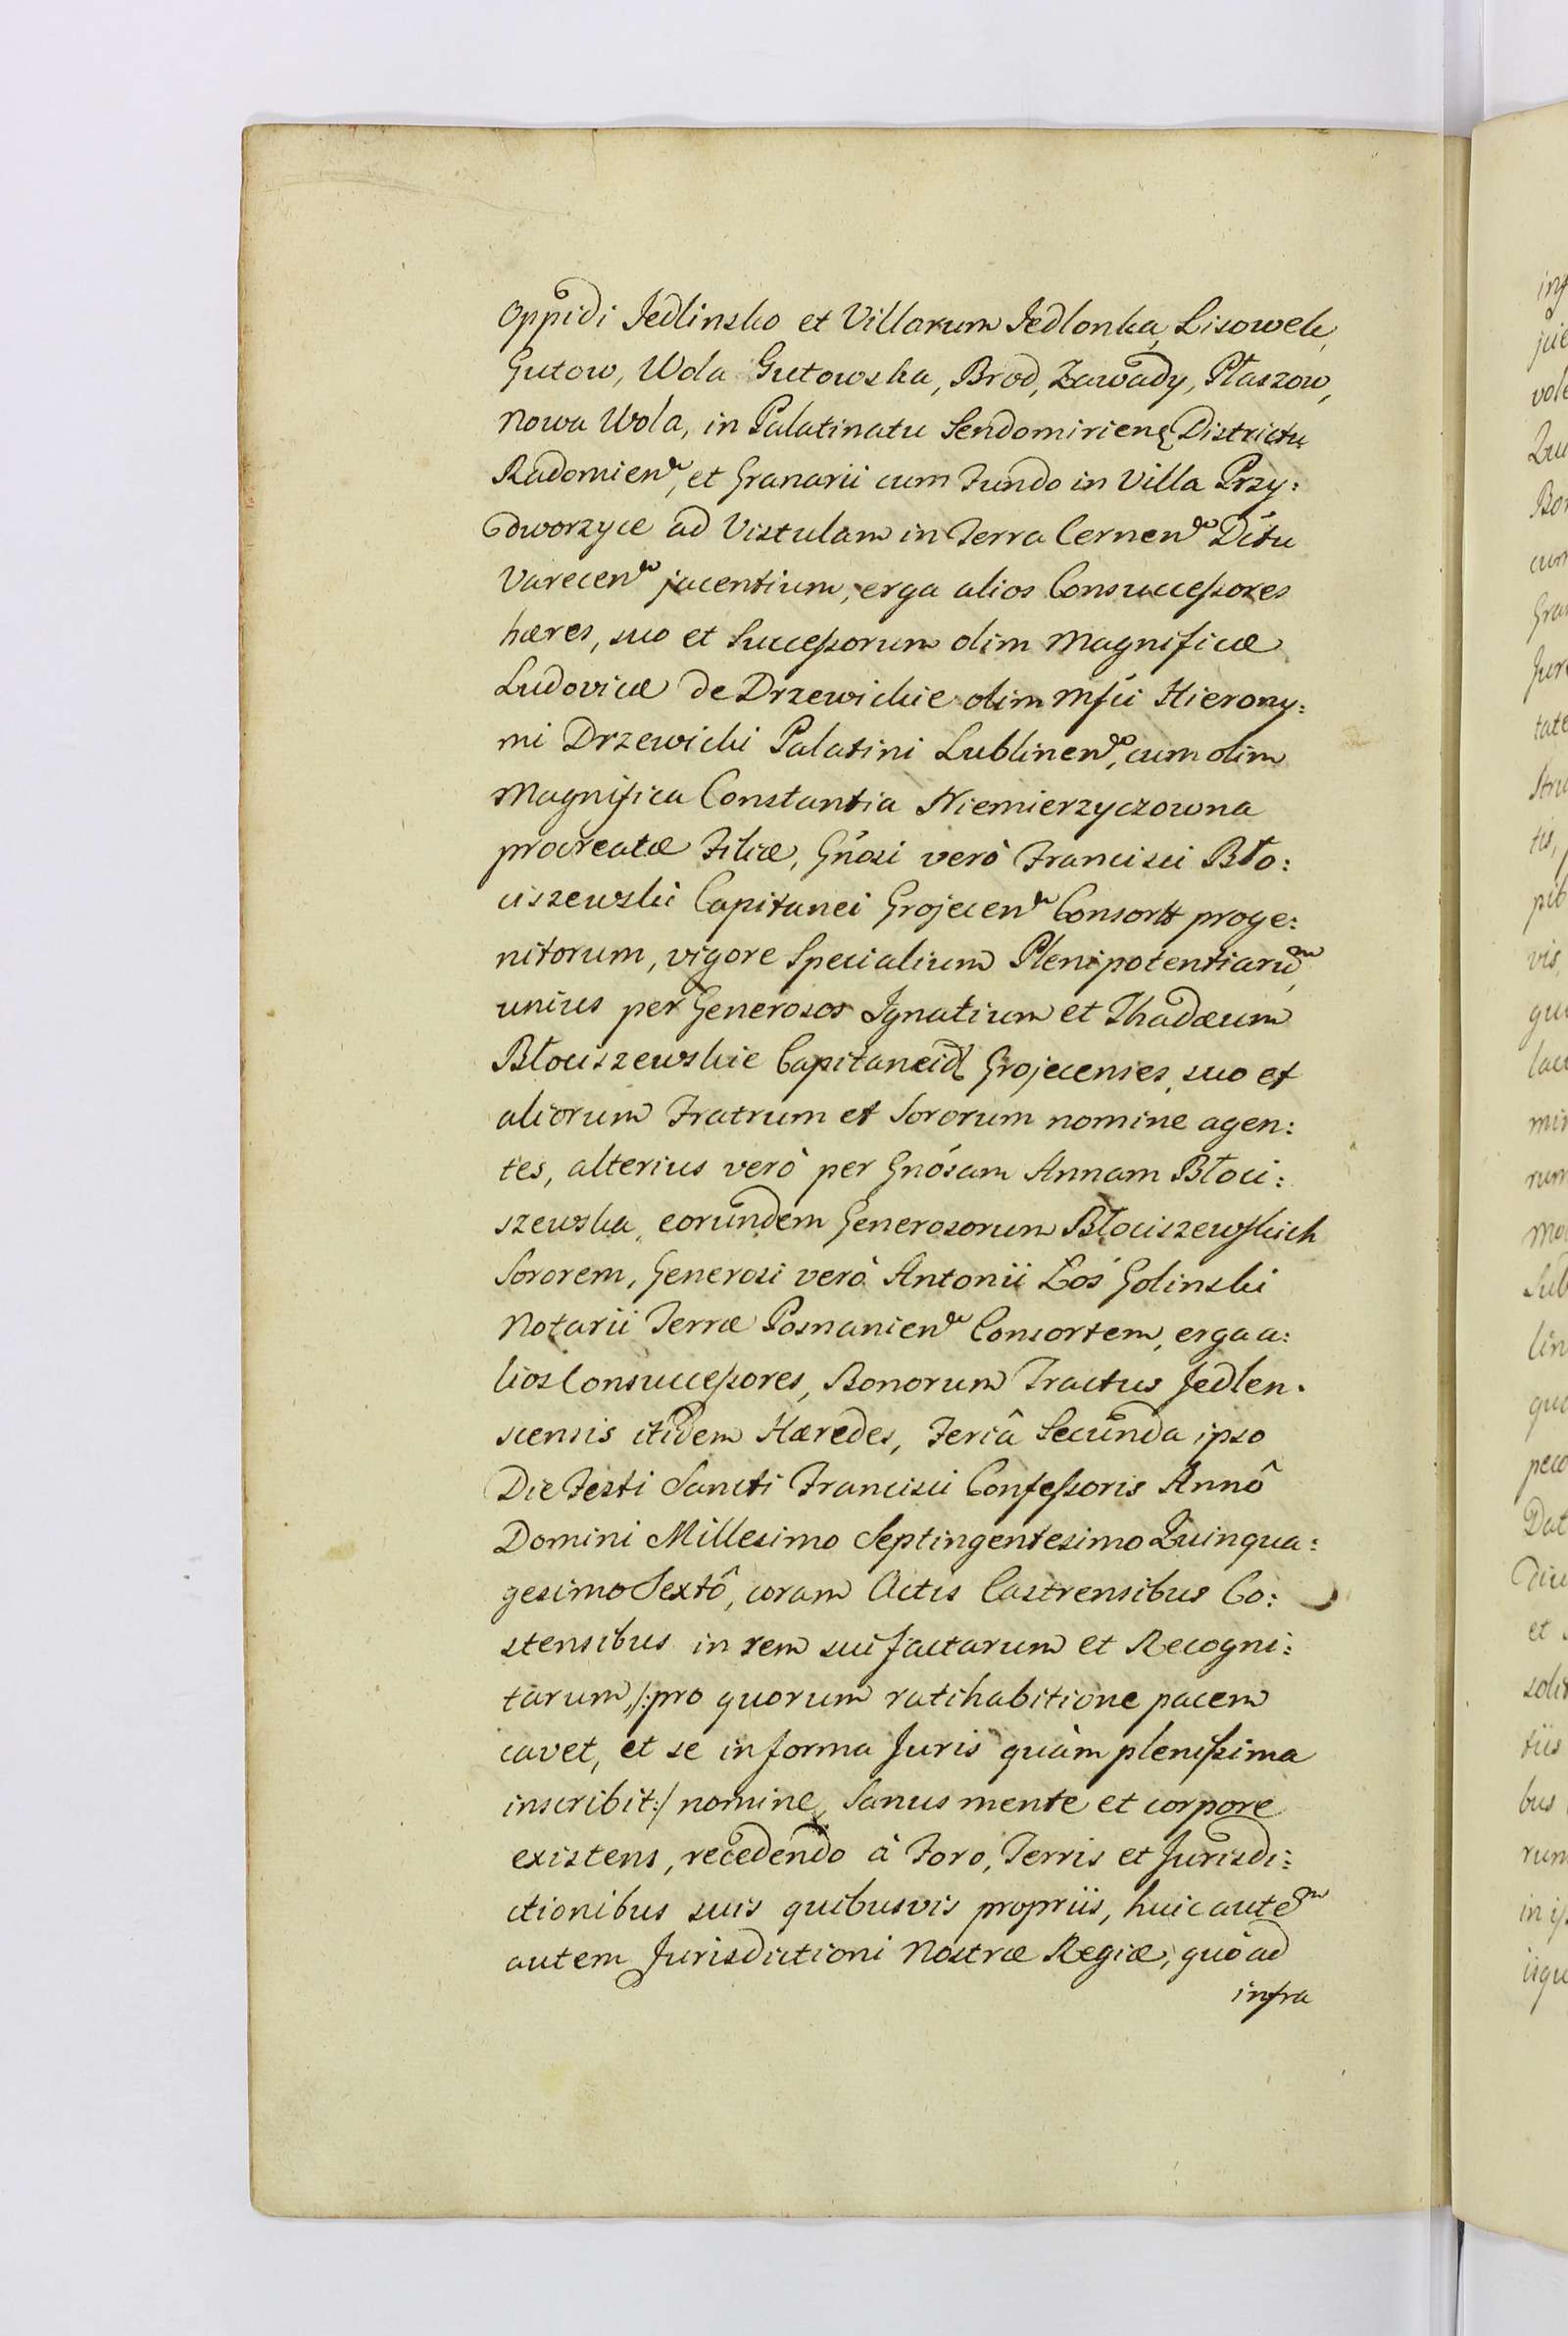 Oppidi Jedlinsko et Villarum Jedlonka, Lisowek,
Gutow, Wola Gutowska, Brod, Zawady, Płaszow,
Nowa Wola, in Palatinatu Sendomirien Districtu
Radomien, et Granarii cum Fundo in Villa Przy:
dworzyce ad Vistulam in Terra Cernen Dĩtu
Varecen jacentium, erga alios Consuccessores
hæres, suo et Successorum olim Magnificæ
Ludovicæ de Drzewickie olim Mfci Hierony:
mi Drzewicki Palatini Lublinen, cum olim
Magnifica Constantia Niemierzyczowna
procreatæ Filiæ, Gnosi verò Francisci Bło:
ciszewski Capitanei Grojecen Consortt proge:
nitorum, vigore Specialium Plenipotentiarum,
unius per Generosos Ignatium et Thadæum
Błociszewskie Capitaneid Grojecenses, suo et
aliorum Fratrum et Sororum nomine agen:
tes, alterius verò per Gnosam Annam Błoci:
szewska, eorundem Generosorum Błociszewskich
Sororem, Generosi verò Antonii Łoś Golinski
Notarii Terræ Posnanien Consortem, erga a:
lios Consuccessores, Bonorum Tractus Jedlen.
scensis itidem Hæredes, Feriâ Secunda ipso
Die Festi Sancti Francisci Confessoris Annô
Domini Millesimo Septingentesimo Quinqua:
gesimo Sextô, coram Actis Castrensibus Co:
stensibus in rem sui factarum et Recogni:
tarum, /:pro quorum ratihabitione pacem
cavet, et se in forma Juris quàm plenissima
inscribit:/ nomine, Sanus mente et corpore
existens, recedendo à Foro, Terris et Jurisdi:
ctionibus suis quibusvis propriis, huic autem
autem Jurisdictioni Nostræ Regiæ, quò ad
infra